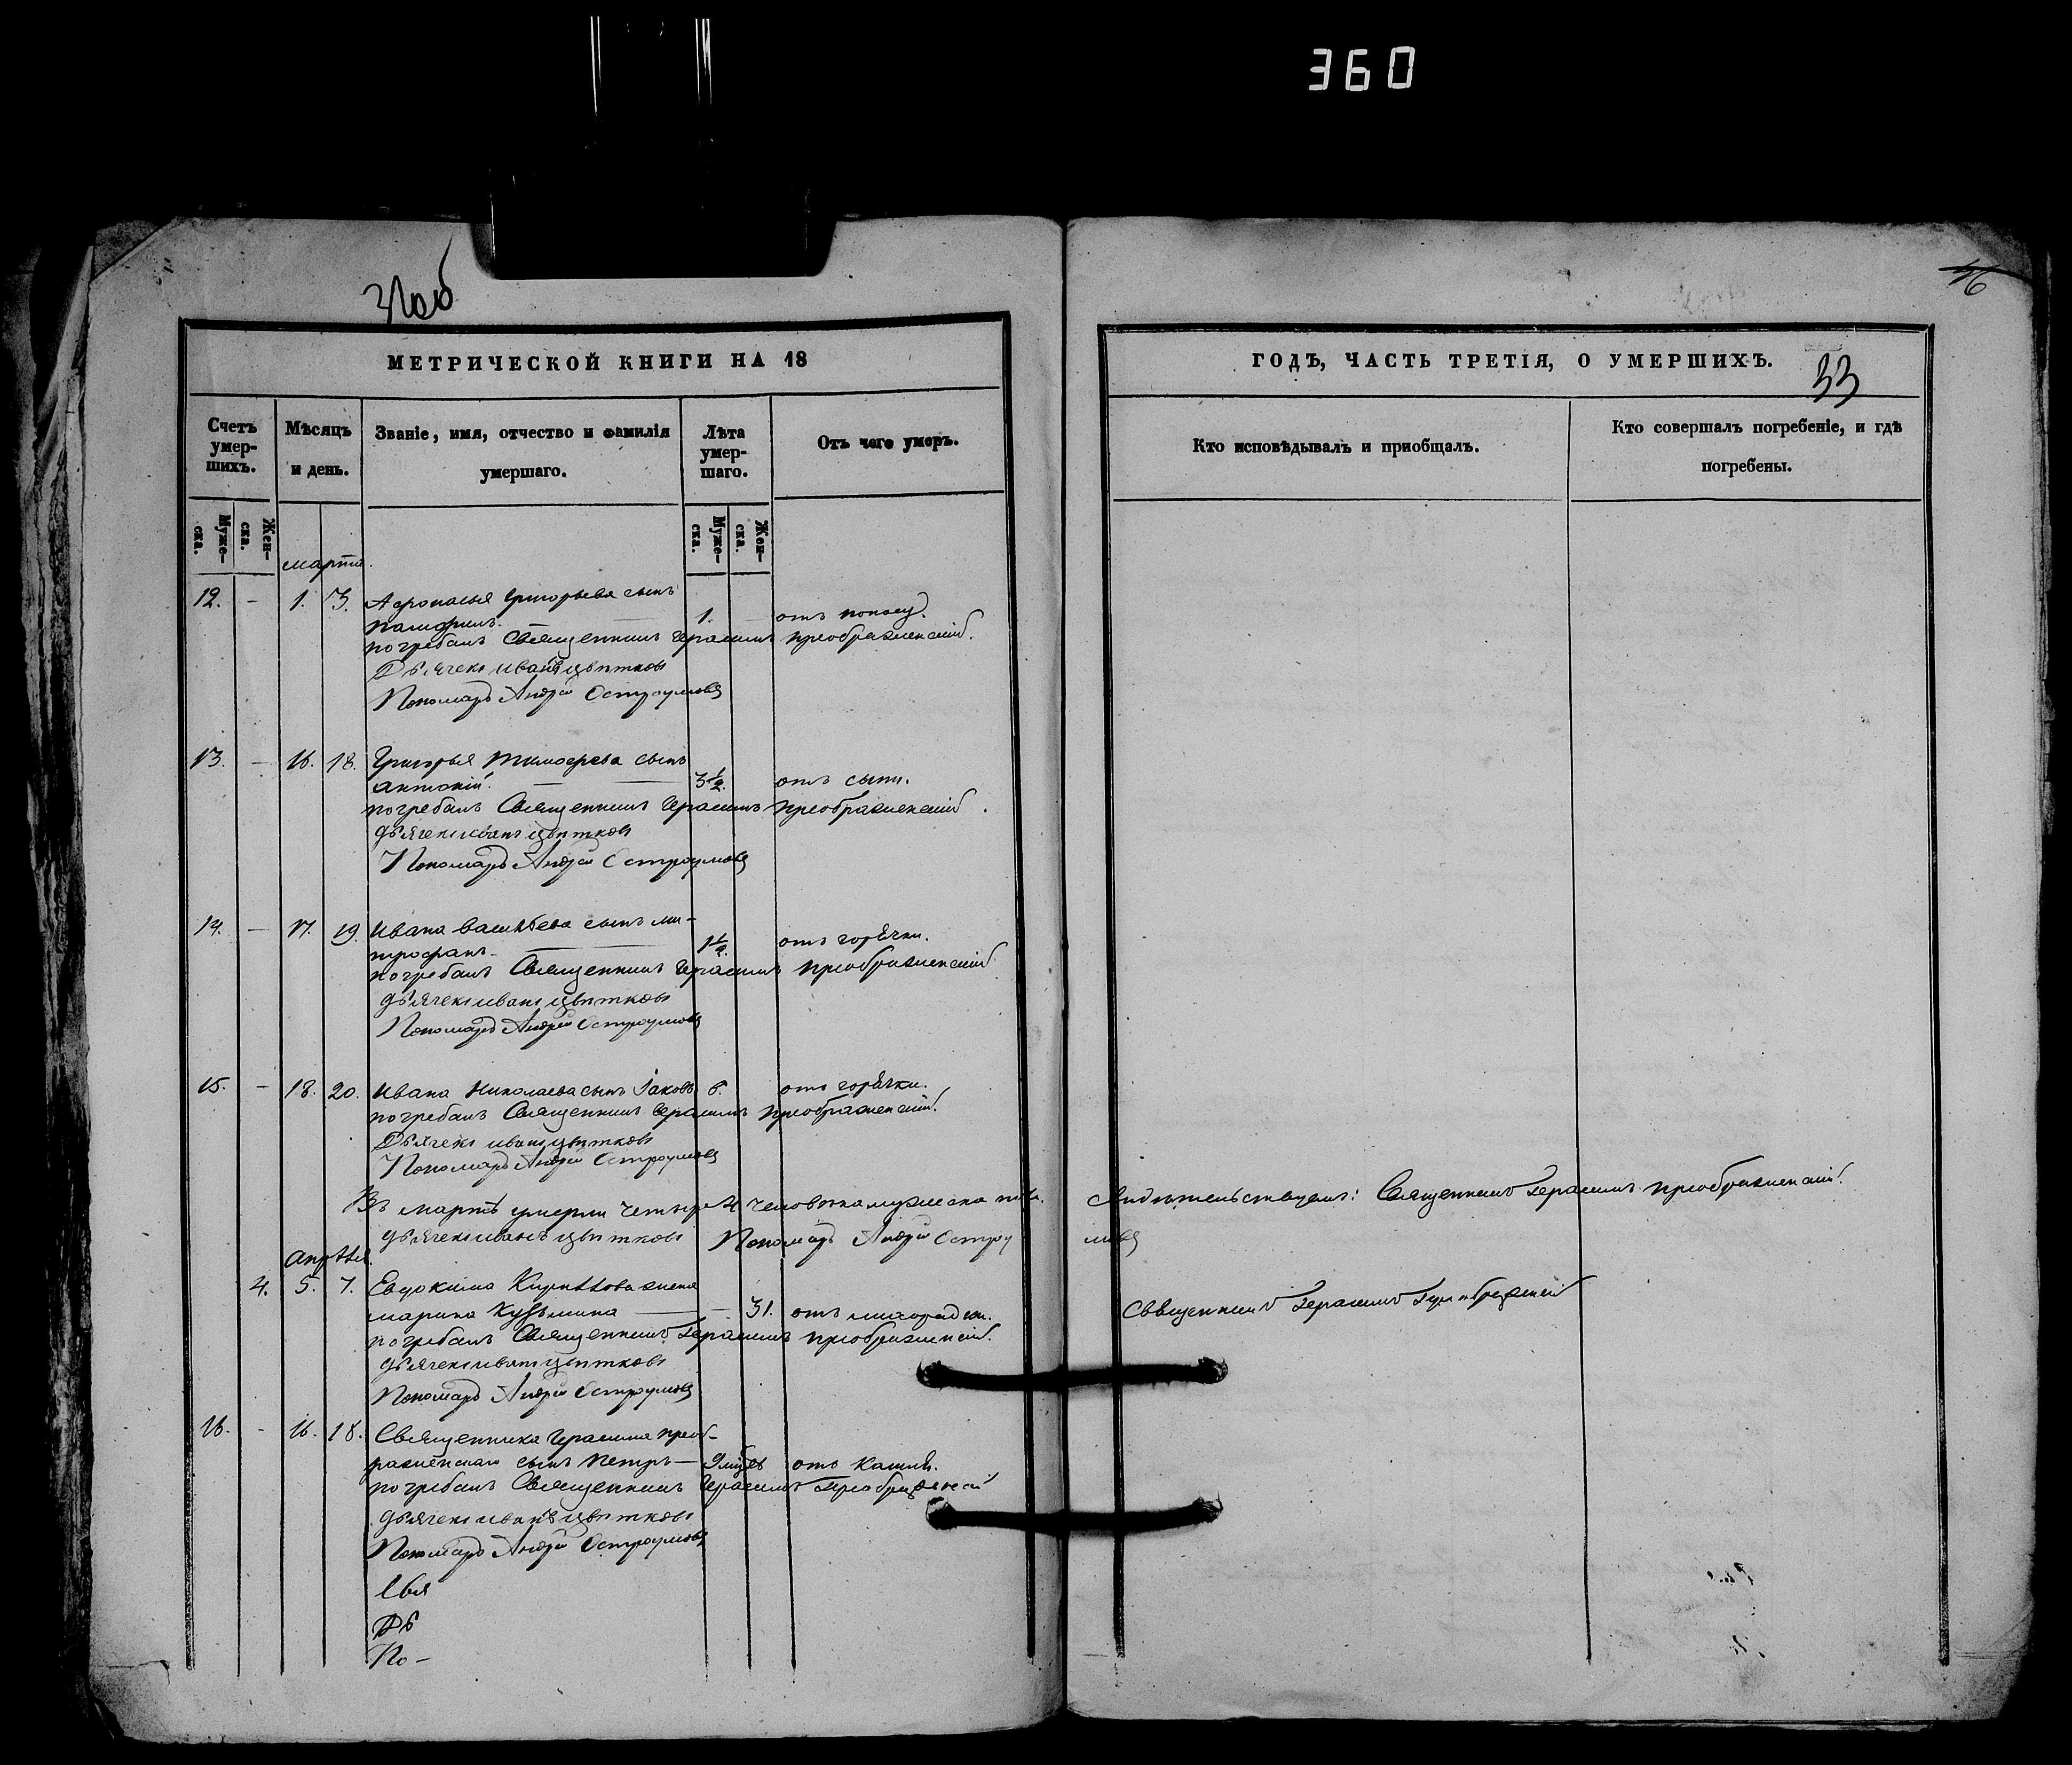 360
32об
36
МЕТРИЧЕСКОЙ КНИГИ НА 18
ГОДЪ, ЧАСТЬ ТРЕТІЯ, О УМЕРШИХЪ.
33
Счетъ умер-шихъ.
Мѣсяцъ и день.
Званіе, имя, отчество и фамилія умершаго.
Лѣта умер-шаго.
Отъ чего умеръ.
Кто исповѣдывалъ и приобщалъ.
Кто совершалъ погребеніе, и гдѣ погребены.
Муже-ска.
Жен-ска.
Муже-ска.
Жен-ска.
марта.
12. – 1. 3. Афонасья Григорьева сынъ
памфилъ. 1. отъ поносу.
погребалъ Священникъ Герасимъ преображенскій.
Дьячекъ иванъ цвѣтковъ
Пономарь Андрей Остроумовъ
13. – 16. 18. Григорья тимофеева сынъ
антоній. 3½. отъ сыпи.
погребалъ Священникъ Герасимъ преображенскій.
дьячекъ иванъ цвѣтковъ
Пономарь Андрей Остроумовъ
14. – 17. 19. Ивана васильева сынъ ми-
трофанъ. 1½. отъ горячки.
погребалъ Священникъ Герасимъ преображенскій
дьячекъ иванъ цвѣтковъ
Пономарь Андрей Остроумовъ
15. – 18. 20. Ивана николаева сынъ Іаковъ 6. отъ горячки.
погребалъ Священникъ Герасимъ преображенскій.
Дьячекъ иванъ цвѣтковъ
Пономарь Андрей Остроумовъ
Въ мартѣ умерли четыре 4 человѣка мужеска пола. Свидѣтельствуемъ: Священникъ Герасимъ преображенскій.
дьячекъ иванъ цвѣтковъ Пономарь Андрей Остроу
мовъ
апрѣля.
4. 5. 7. Евдокима Кирилова жена
марина Кузьмина – 31. отъ лихорадки.
погребалъ Священникъ Герасимъ преображенскій.
Священникъ Герасимъ
дьячекъ иванъ цвѣтковъ
Пономарь Андрей Остроумовъ
16. – 16. 18. Священника Герасима преоб-
раженскаго сынъ петръ – 9 отъ кашля.
погребалъ Священникъ Герасимъ преображенскій
дьячекъ иванъ цвѣтковъ
Пономарь Андрей Остроумовъ
Свя
Дь
По –